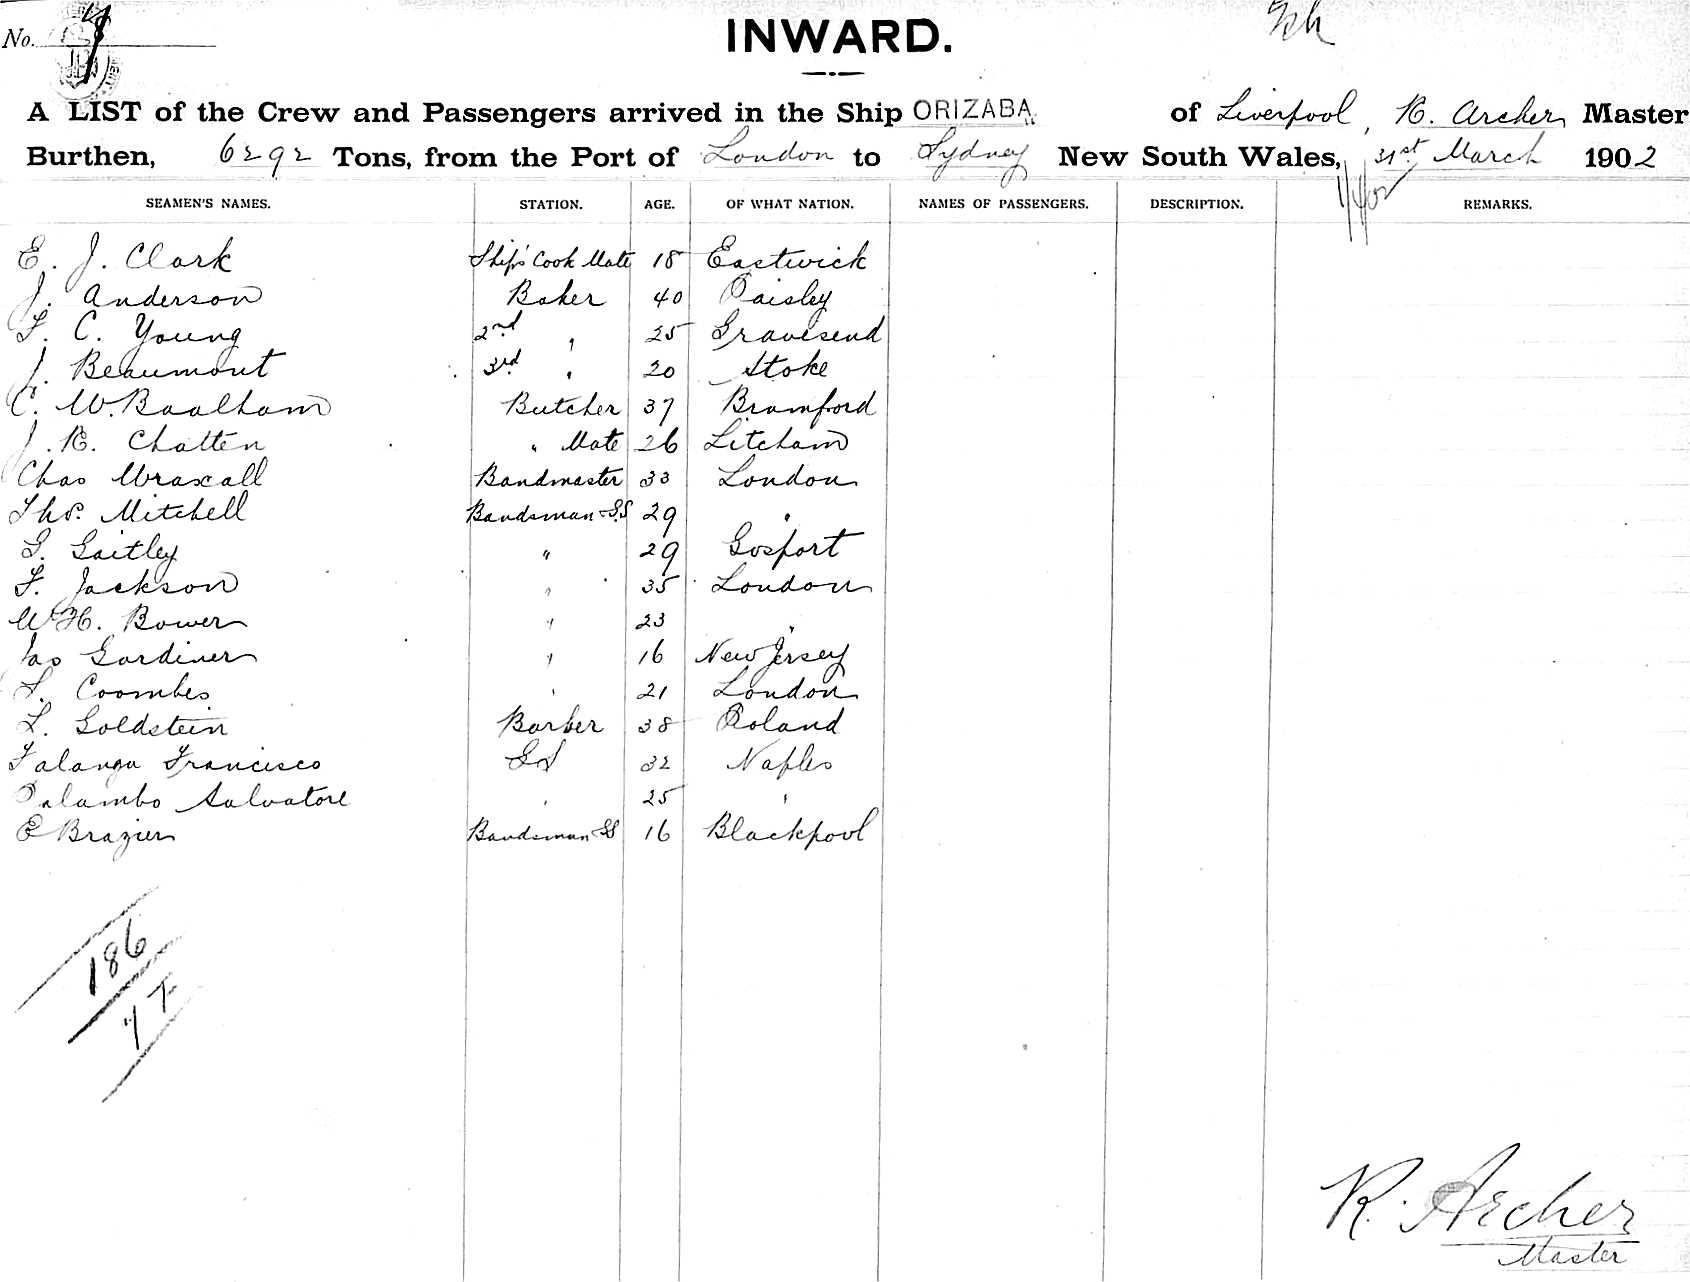 No.
INWARD.
A LIST of the Crew and Passengers arrived in the Ship ORIZABA of Liverpool, R. Archer Master
Burthen, 6292 Tons, from the Port of London to Sydney New South Wales, 31st March 1902
1/4/02
SEAMEN'S NAMES. STATION. AGE. OF WHAT NATION. NAMES OF PASSENGERS. DESCRIPTION. REMARKS.
E. J. Clark Ship's Cook Mate 18 Eastwick
J. Anderson Baker 40 Paisley
F. C. Young 2nd " 25 Gravesend
J. Beaumont 3rd " 20 Stoke
C. W. Baalham Butcher 37 Bramford
J. R. Chatten " Mate 26 Litcham
Chas Wraxall Bandmaster 33 London
Thos. Mitchell Bandsman SS 29 "
G. Gaitley " 29 Gosport
F. Jackson " 35 London
W. H. Bower " 23 "
Jas Gardiner " 16 New Jersey
Coombes " 21 London
L. Goldstein Barber 38 Poland
Falanga Francisco GS 32 Naples
Palambo Salvatore " 25 "
E Brazier Bandsman SS 16 Blackpool
186
R. Archer
Master